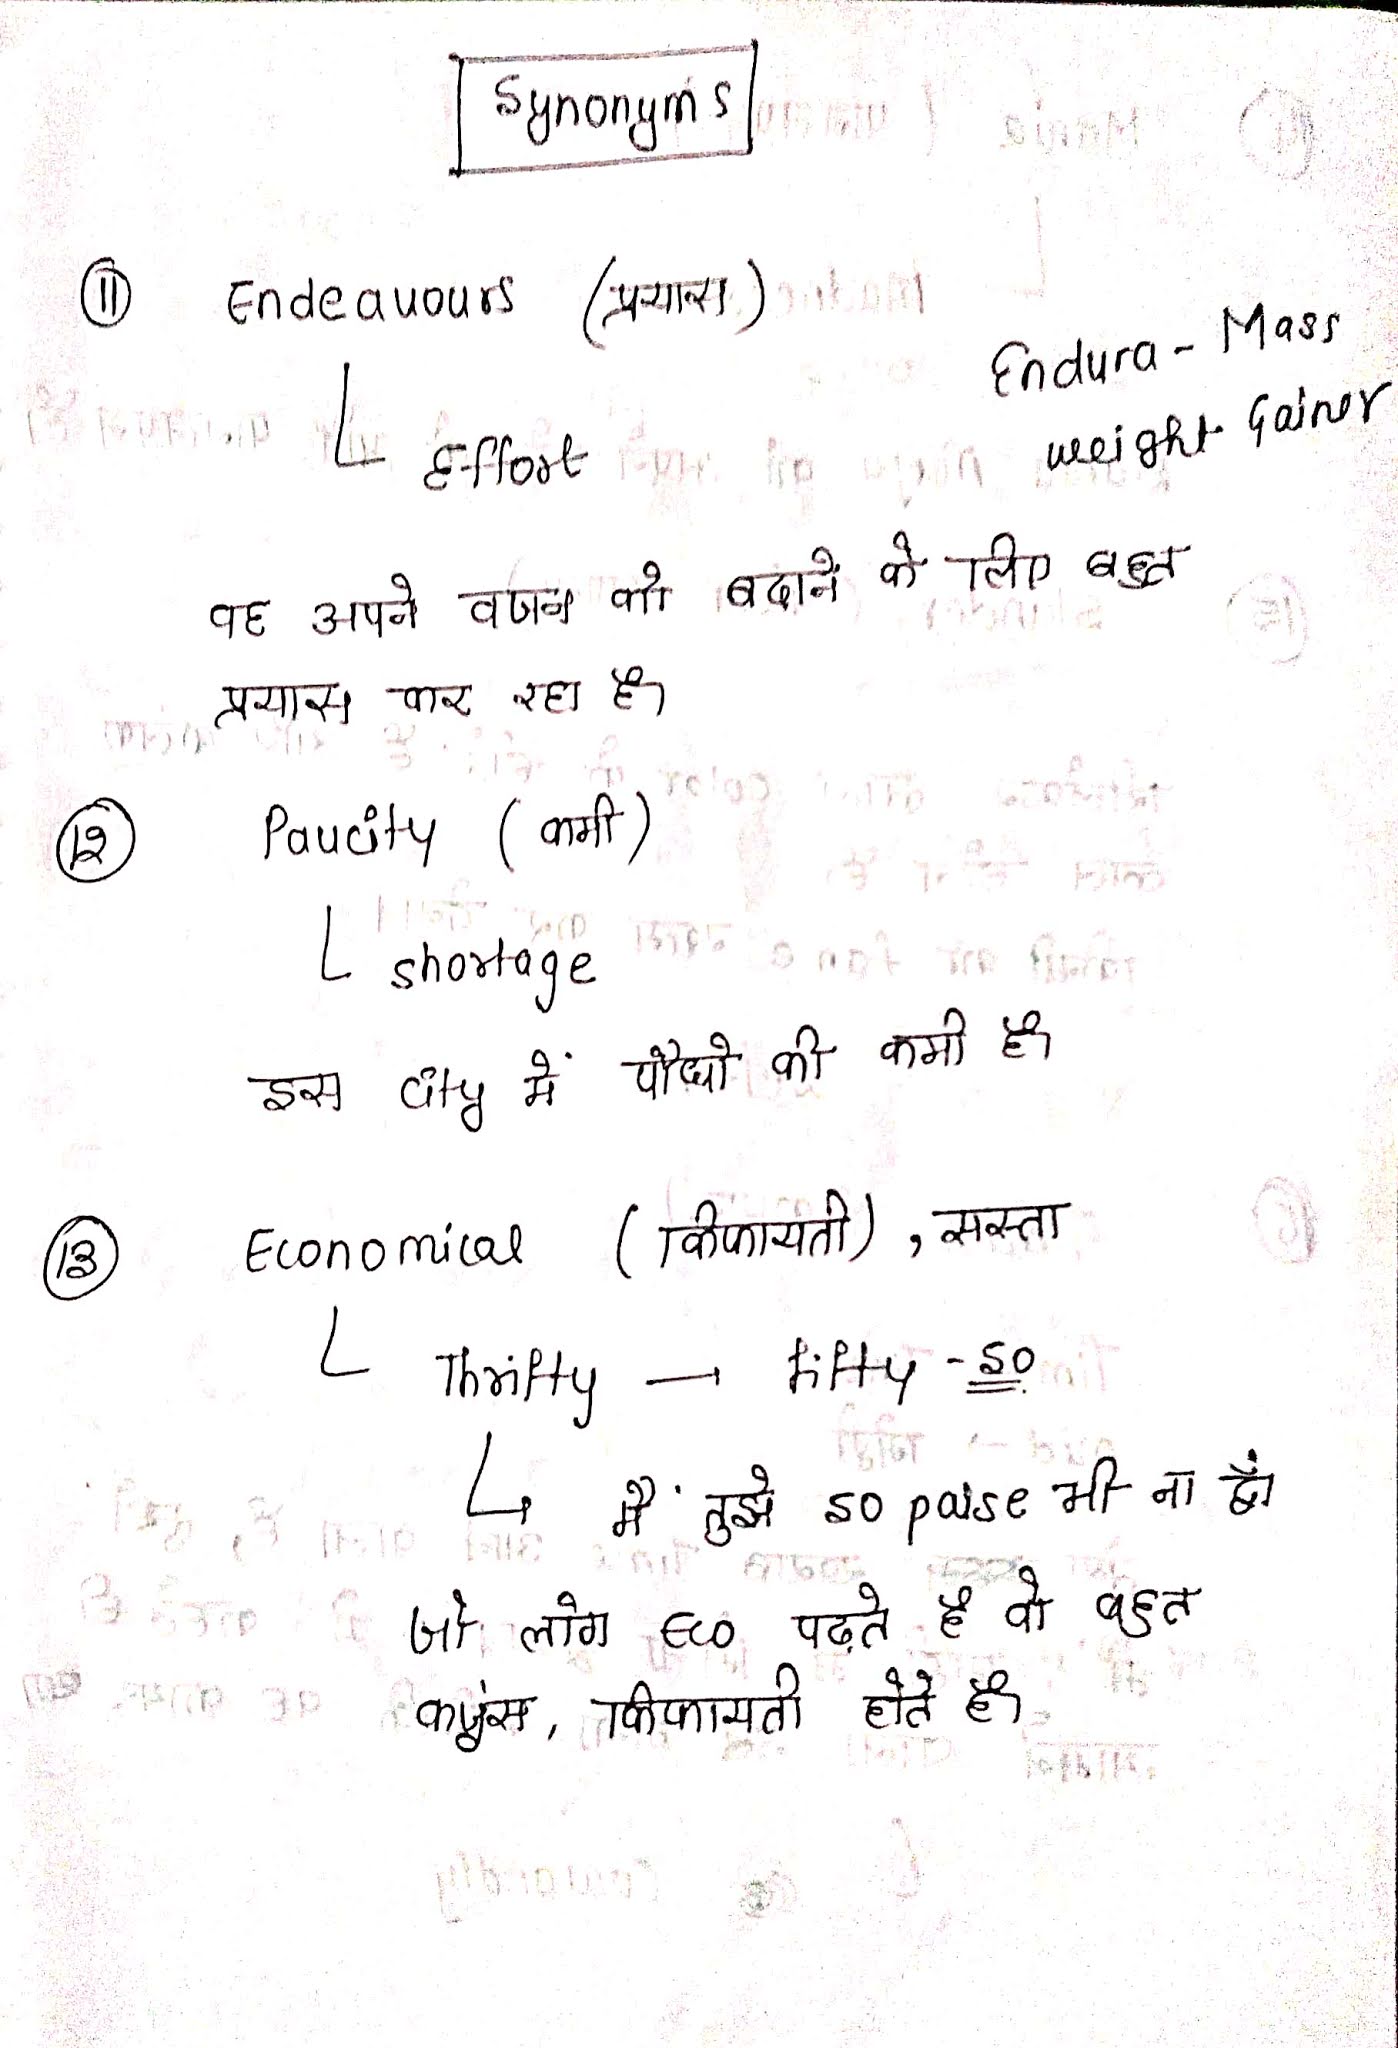 Synonyms
11 Endeavours (प्रयास)
Endura - Mass
weight Gainer
Effort
वह अपने वजन को बढाने के लिए बहुत
प्रयास कर रहा है।
12 Paucity (कमी)
shortage
इस city में पौधो की कमी है।
13 Economical (किफायती), सस्ता
Thrifty → fifty - 50
मैं तुझे 50 paise भी ना दूँ।
जो लोग Eco पढ़ते है वो बहुत
कजूंस, किफायती होते है।